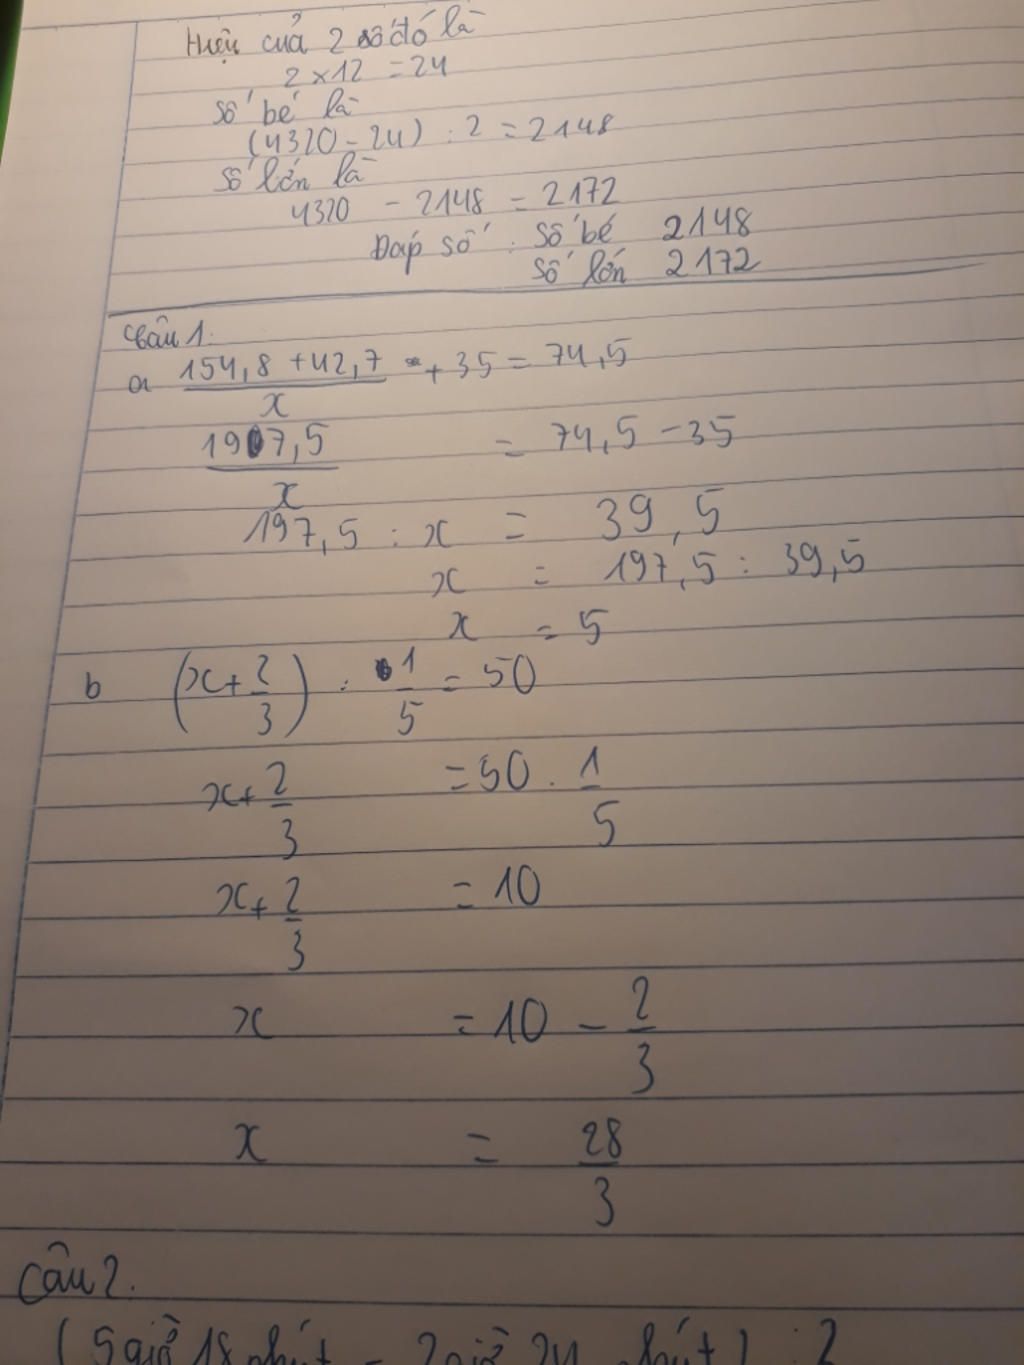 Hiệu của 2 số đó là
2 x 12 = 24
Số bé là
(4320 - 24) : 2 = 2148
Số lớn là
4320 - 2148 = 2172
Đáp số : Số bé 2148
Số lớn 2172
Câu 1.
a 154,8 + 42,7 / x + 35 = 74,5
197,5 / x = 74,5 - 35
197,5 : x = 39,5
x = 197,5 : 39,5
x = 5
b (x + 2/3) : 1/5 = 50
x + 2/3 = 50 . 1/5
x + 2/3 = 10
x = 10 - 2/3
x = 28/3
Câu 2.
(5 giờ 18 phút - 2 giờ 24 phút) : 2